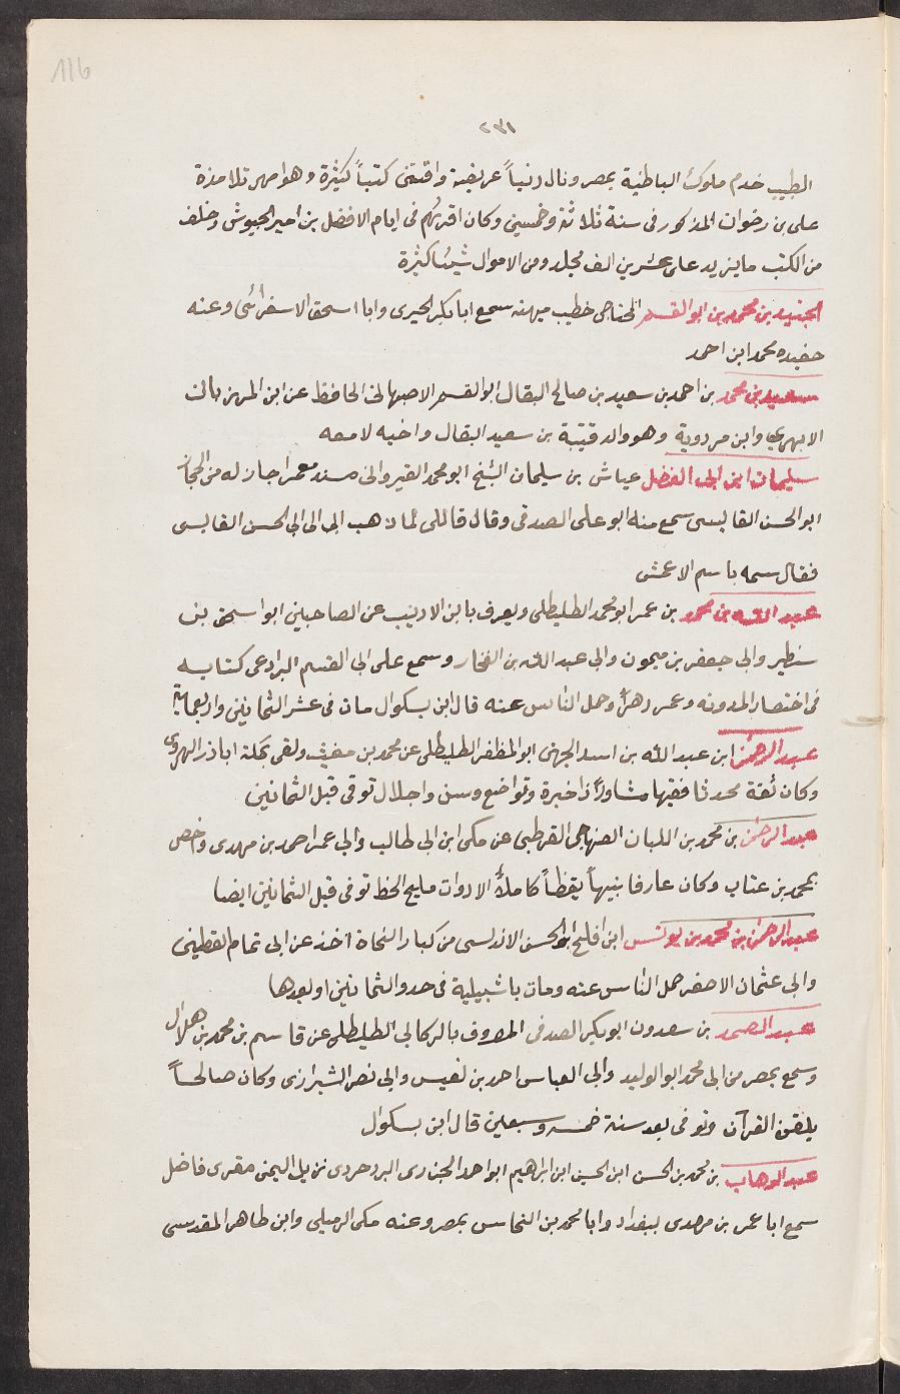 116
٢٣١
الطبيب خدم ملوك الباطنية بمصر ونال دنياً عريضة واقتنى كتباً كثيرة وهو امهر تلامذة
على بن رضوان المذكور فى سنة ثلاثة وخمسين وكان اقربهم فى ايام الافضل بن امير الجيوش وخلف
من الكتب مايزيد على عشرين الف مجلد ومن الاموال شيئا كثيرة
الجنيد بن محمد بن ابو القسم خطيب ميهنه سمع ابا بكر الحيرى وابا اسحق الاسفرائنى وعنه
حفيده محمد ابن احمد
سعيد بن محمد بن احمد بن سعيد بن صالح البقال ابو القسم الاصبهانى الحافظ عن ابن المرزبان
الابهري وابن مردوية وهو والد قتيبة بن سعيد البقال واخيه لامعه
سليمان ابن ابى الفضل عياش بن سليمان الشيخ ابو محمد القيروانى مسند معمر اجاز له من الحجاز
ابو الحسن القابسى سمع منه ابو على الصدفى وقال قال لى لما ذهب ابى الى ابى الحسن القابسى
فقال سمه باسم الاعمش
عبد الله بن محمد بن عمر ابو محمد الطليطلى ويعرف بابن الاديب عن الصاحبين ابو اسحق بن
شنظير وابى جعفر بن ميمون وابى عبد الله بن الفخار وسمع على ابى القسم البرادعى كتابه
فى اختصار المدونه وعمر دهراً وحمل الناس عنه قال ابن بسكوال مات فى عشر الثمانين واربعماية
عبد الرحمن ابن عبد الله بن اسد الجهنى ابو المظفر الطليطلى عن محمد بن مغيث ولقى بمكة اباذر الهروى
وكان ثقة محدثا فقيها مشاوراً ذا خبرة وتواضع وسن واجلال توفى قبل الثمانين
عبد الرحمن بن محمد بن اللبان الصنهاجى القرطبى عن مكى ابن ابى طالب وابى عمر احمد بن مهدى واختص
بمحمد بن عتاب وكان عارفا نبيهاً يقظاً كاملاً الادوات مليح الخط توفى قبل الثمانين ايضا
عبد الرحمن بن محمد بن يونس ابن افليح ابو الحسن الاندلسى من كبار النحاة اخذ عن ابى تمام القطينى
وابى عثمان الاصفر حمل الناس عنه ومات باشبيلية فى حدو الثمانين او بعدها
عبد الصمد بن سعدون ابو بكر الصدفى المعروف بالركابى الطليطلى عن قاسم بن محمد بن هلال
وسمع بمصر من ابى محمد ابو الوليد وابى العباس احمد بن نفيس وابى نصر الشيرازى وكان صالحاً
يلقن القرآن وتوفى بعد سنة خمسه وسبعين قال ابن بسكوال
عبد الوهاب بن محمد بن الحسن ابن الحسين ابن ابراهيم ابو احمد البردجردى نزيل اليمن مقرى فاضل
سمع ابا عمر بن مهدى ببغداد وابا محمد بن النحاس بمصر وعنه مكى الرميلى وابن طاهر المقدسى